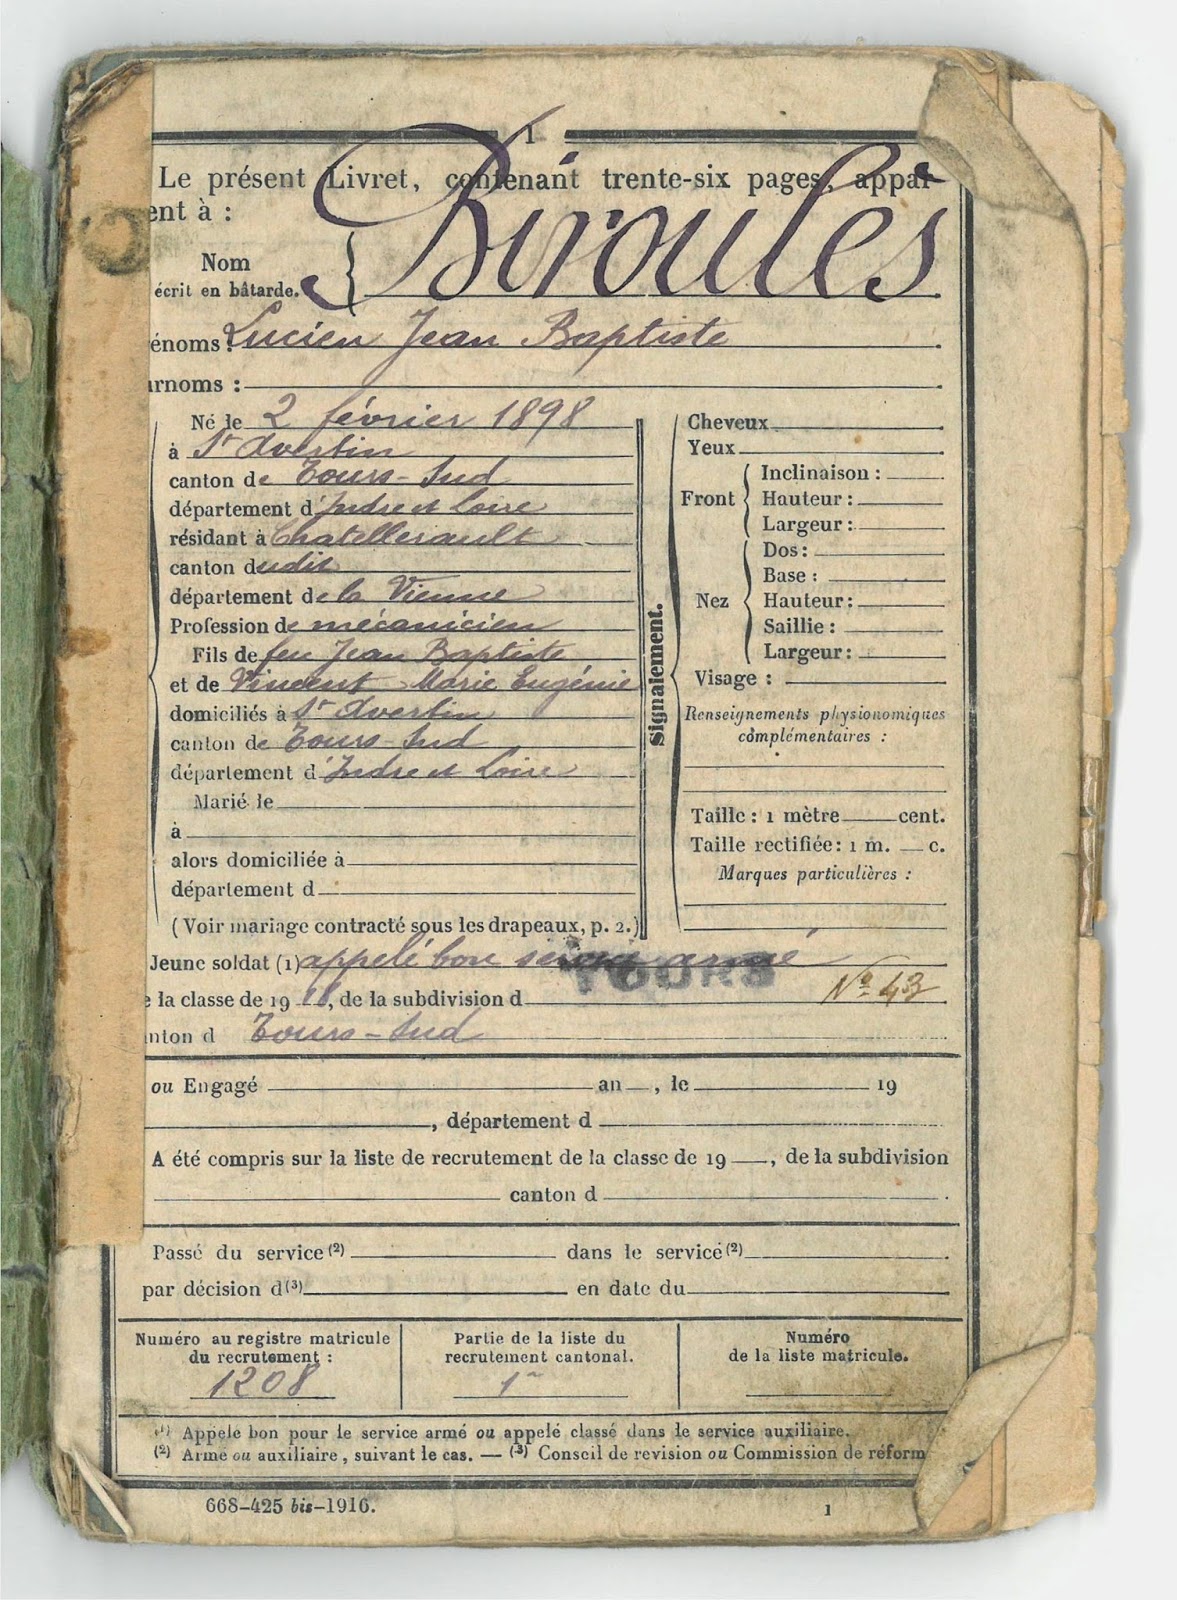 1
Le présent Livret, contenant trente-six pages, appar-
ent à :
Nom
écrit en bâtarde.
Biroulès
énoms : Lucien Jean Baptiste
urnoms :
Né le 2 février 1898
à St Avertin
canton de Tours-Sud
département d'Indre et Loire
résidant à Chatellerault
canton dudit
département de la Vienne
Profession de mécanicien
Fils de feu Jean Baptiste
et de Vincent Marie Eugénie
domiciliés à St Avertin
canton de Tours-Sud
département d'Indre et Loire
Marié le
à
alors domiciliée à
département d
(Voir mariage contracté sous les drapeaux, p. 2.)
Signalement.
Cheveux
Yeux
Front
Inclinaison :
Hauteur :
Largeur :
Nez
Dos :
Base :
Hauteur :
Saillie :
Largeur :
Visage :
Renseignements physionomiques
complémentaires :
Taille : 1 mètre cent.
Taille rectifiée : 1 m. c.
Marques particulières :
Jeune soldat (1) appelé bon service armé
e la classe de 1918, de la subdivision d TOURS No 43
nton d Tours-Sud
ou Engagé an , le 19
, département d
A été compris sur la liste de recrutement de la classe de 19 , de la subdivision
canton d .
Passé du service (2) dans le service (2) .
par décision d (3) en date du
Numéro au registre matricule
du recrutement :
1208
Partie de la liste du
recrutement cantonal.
1re
Numéro
de la liste matricule.
(1) Appelé bon pour le service armé ou appelé classé dans le service auxiliaire.
(2) Armé ou auxiliaire, suivant le cas. — (3) Conseil de revision ou Commission de réform
668-425 bis-1916.
1